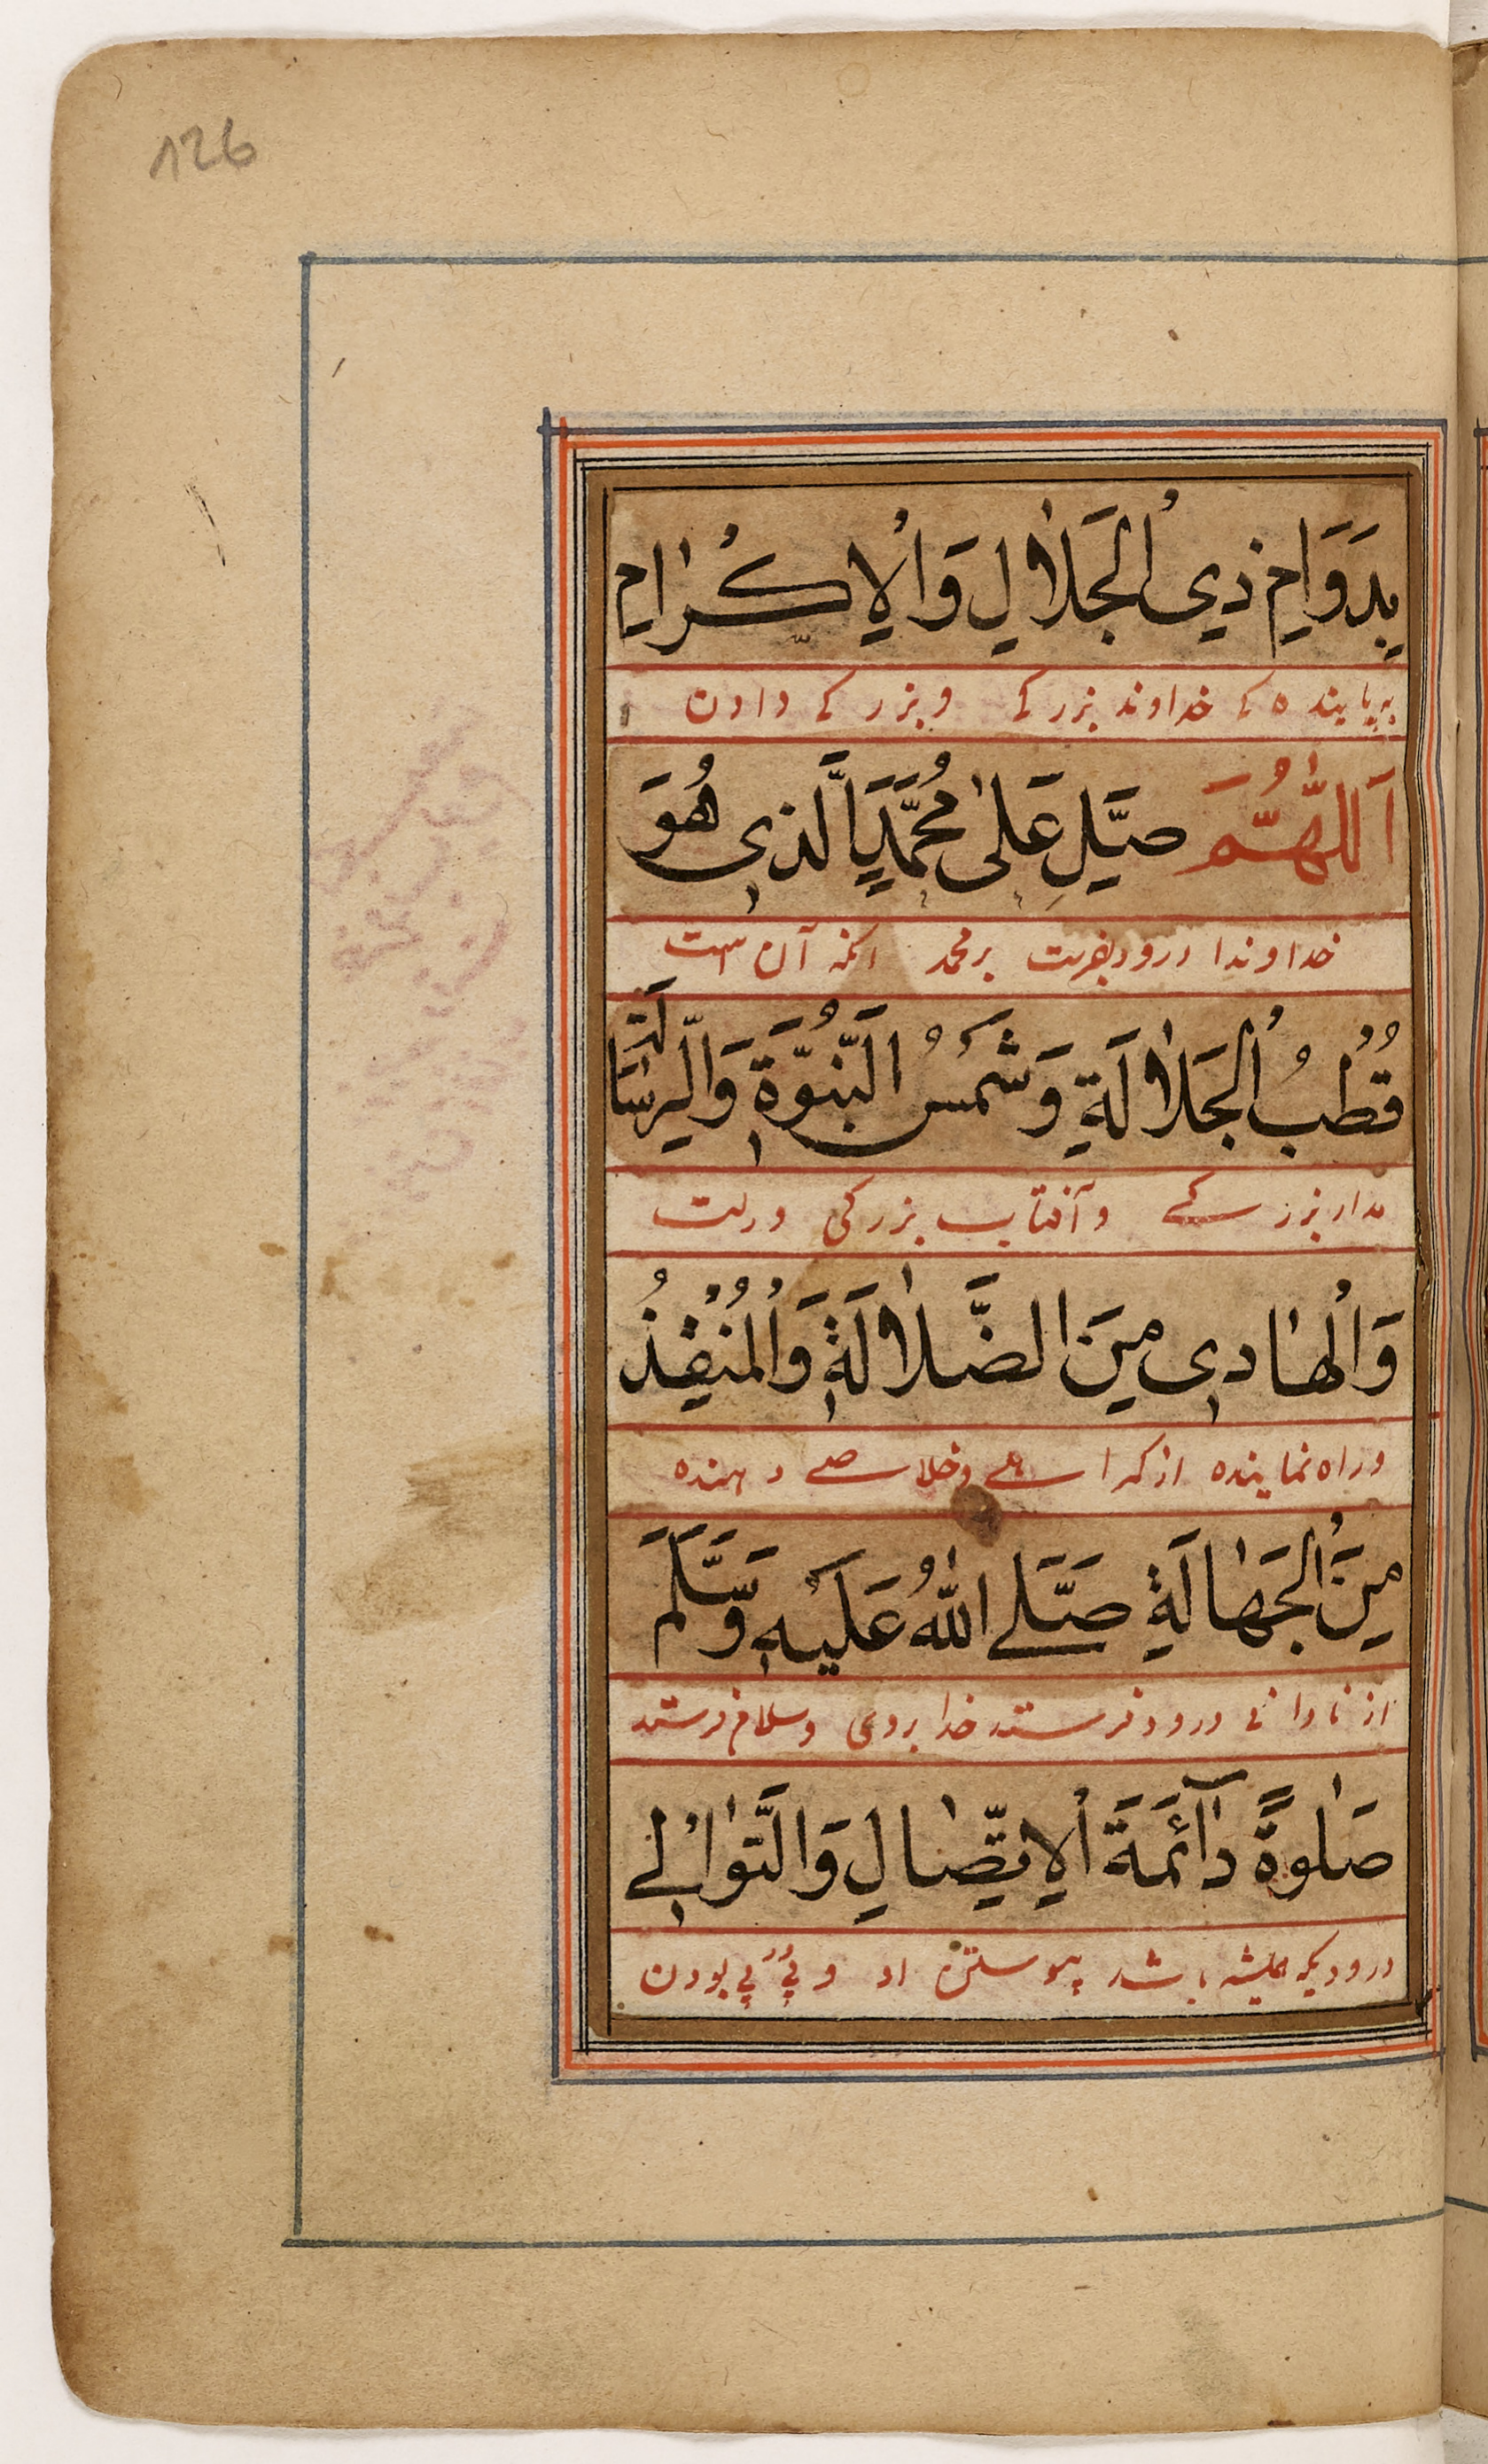 126
بِدَوَامِ ذِي الْجَلَالِ وَالْاِكْرَامِ
بپاینده کی خداوند بزرکی و بزرکی دادن
اَللّٰهُمَّ صَلِّ عَلٰی مُحَمَّدٍ اَلَّذِی هُوَ
خداوندا درود بفرست بر محمد انکه آن است
قُطْبُ الْجَلَالَةِ وَشَمْسُ النُّبُوَّةِ وَالرِّسَالَةِ
مدار بزرکی و آفتاب بزرکی و رسالت
وَالْهَادِی مِنَ الضَّلَالَةِ وَالْمُنْقِذُ
و راه نماینده از کمراهی و خلاصی دهنده
مِنَ الْجَهَالَةِ صَلَّی اللّٰهُ عَلَیْهِ وَسَلَّمَ
از نادانی درود فرستد خدا بروی و سلام فرستد
صَلٰوةً دَآئِمَةَ الْاِتِّصَالِ وَالتَّوَالِی
درودیکه همیشه باشد پیوستن او و پَی پَی بودن